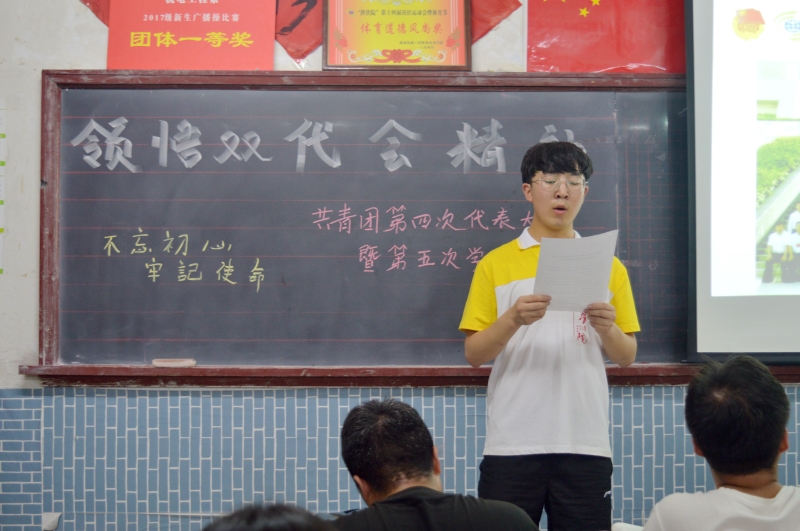 2017级新生广播操比赛
团体一等奖
体育道德风尚奖
领悟双代会精神
共青团第四次代表大
暨第五次学
不忘初心
牢記使命